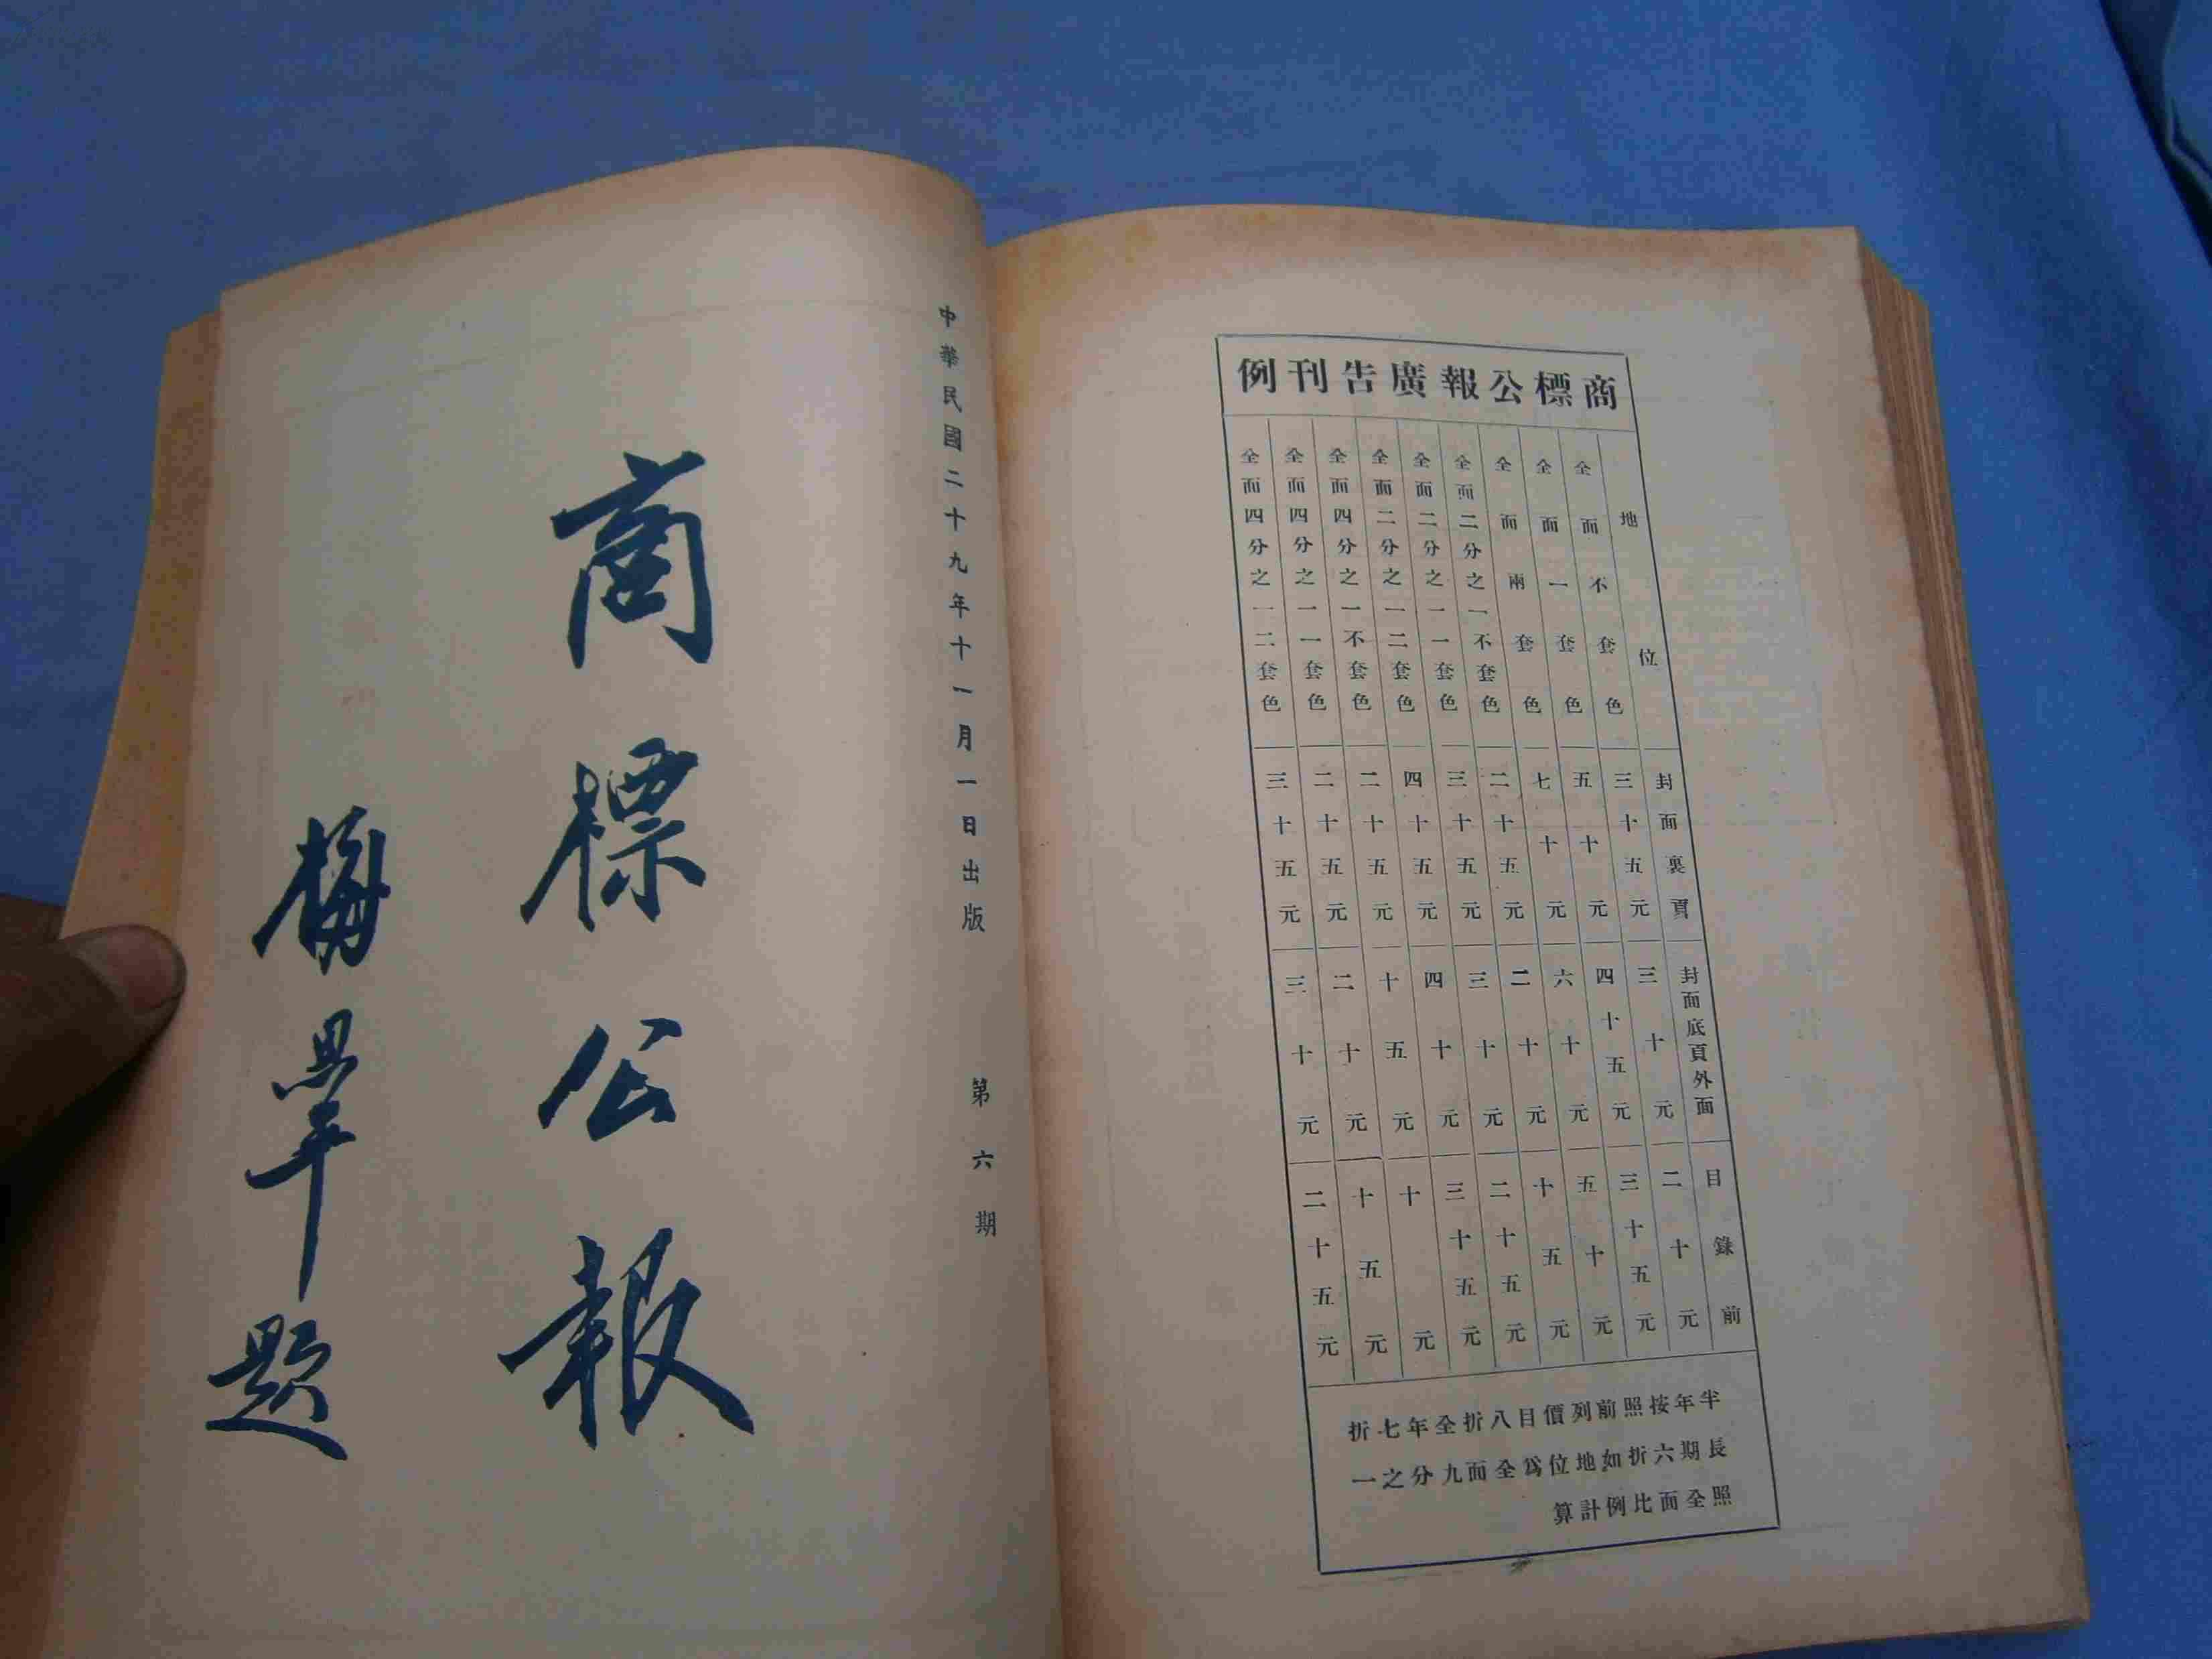 中華民國二十九年十一月一日出版 第六期
商標公報
梅思平題
商標公報廣告刊例
地位 封面裏頁 封面底頁外面 目錄前
全面不套色 三十五元 三十元 二十元
全面一套色 五十元 四十五元 三十五元
全面兩套色 七十元 六十元 五十元
全面二分之一不套色 二十五元 二十元 十五元
全面二分之一一套色 三十五元 三十元 二十五元
全面二分之一二套色 四十五元 四十元 三十五元
全面四分之一不套色 二十五元 十五元 十元
全面四分之一一套色 二十五元 二十元 十五元
全面四分之一二套色 三十五元 三十元 二十五元
半年按照前列價目八折全年七折
長期六折如地位爲全面九分之一
照全面比例計算